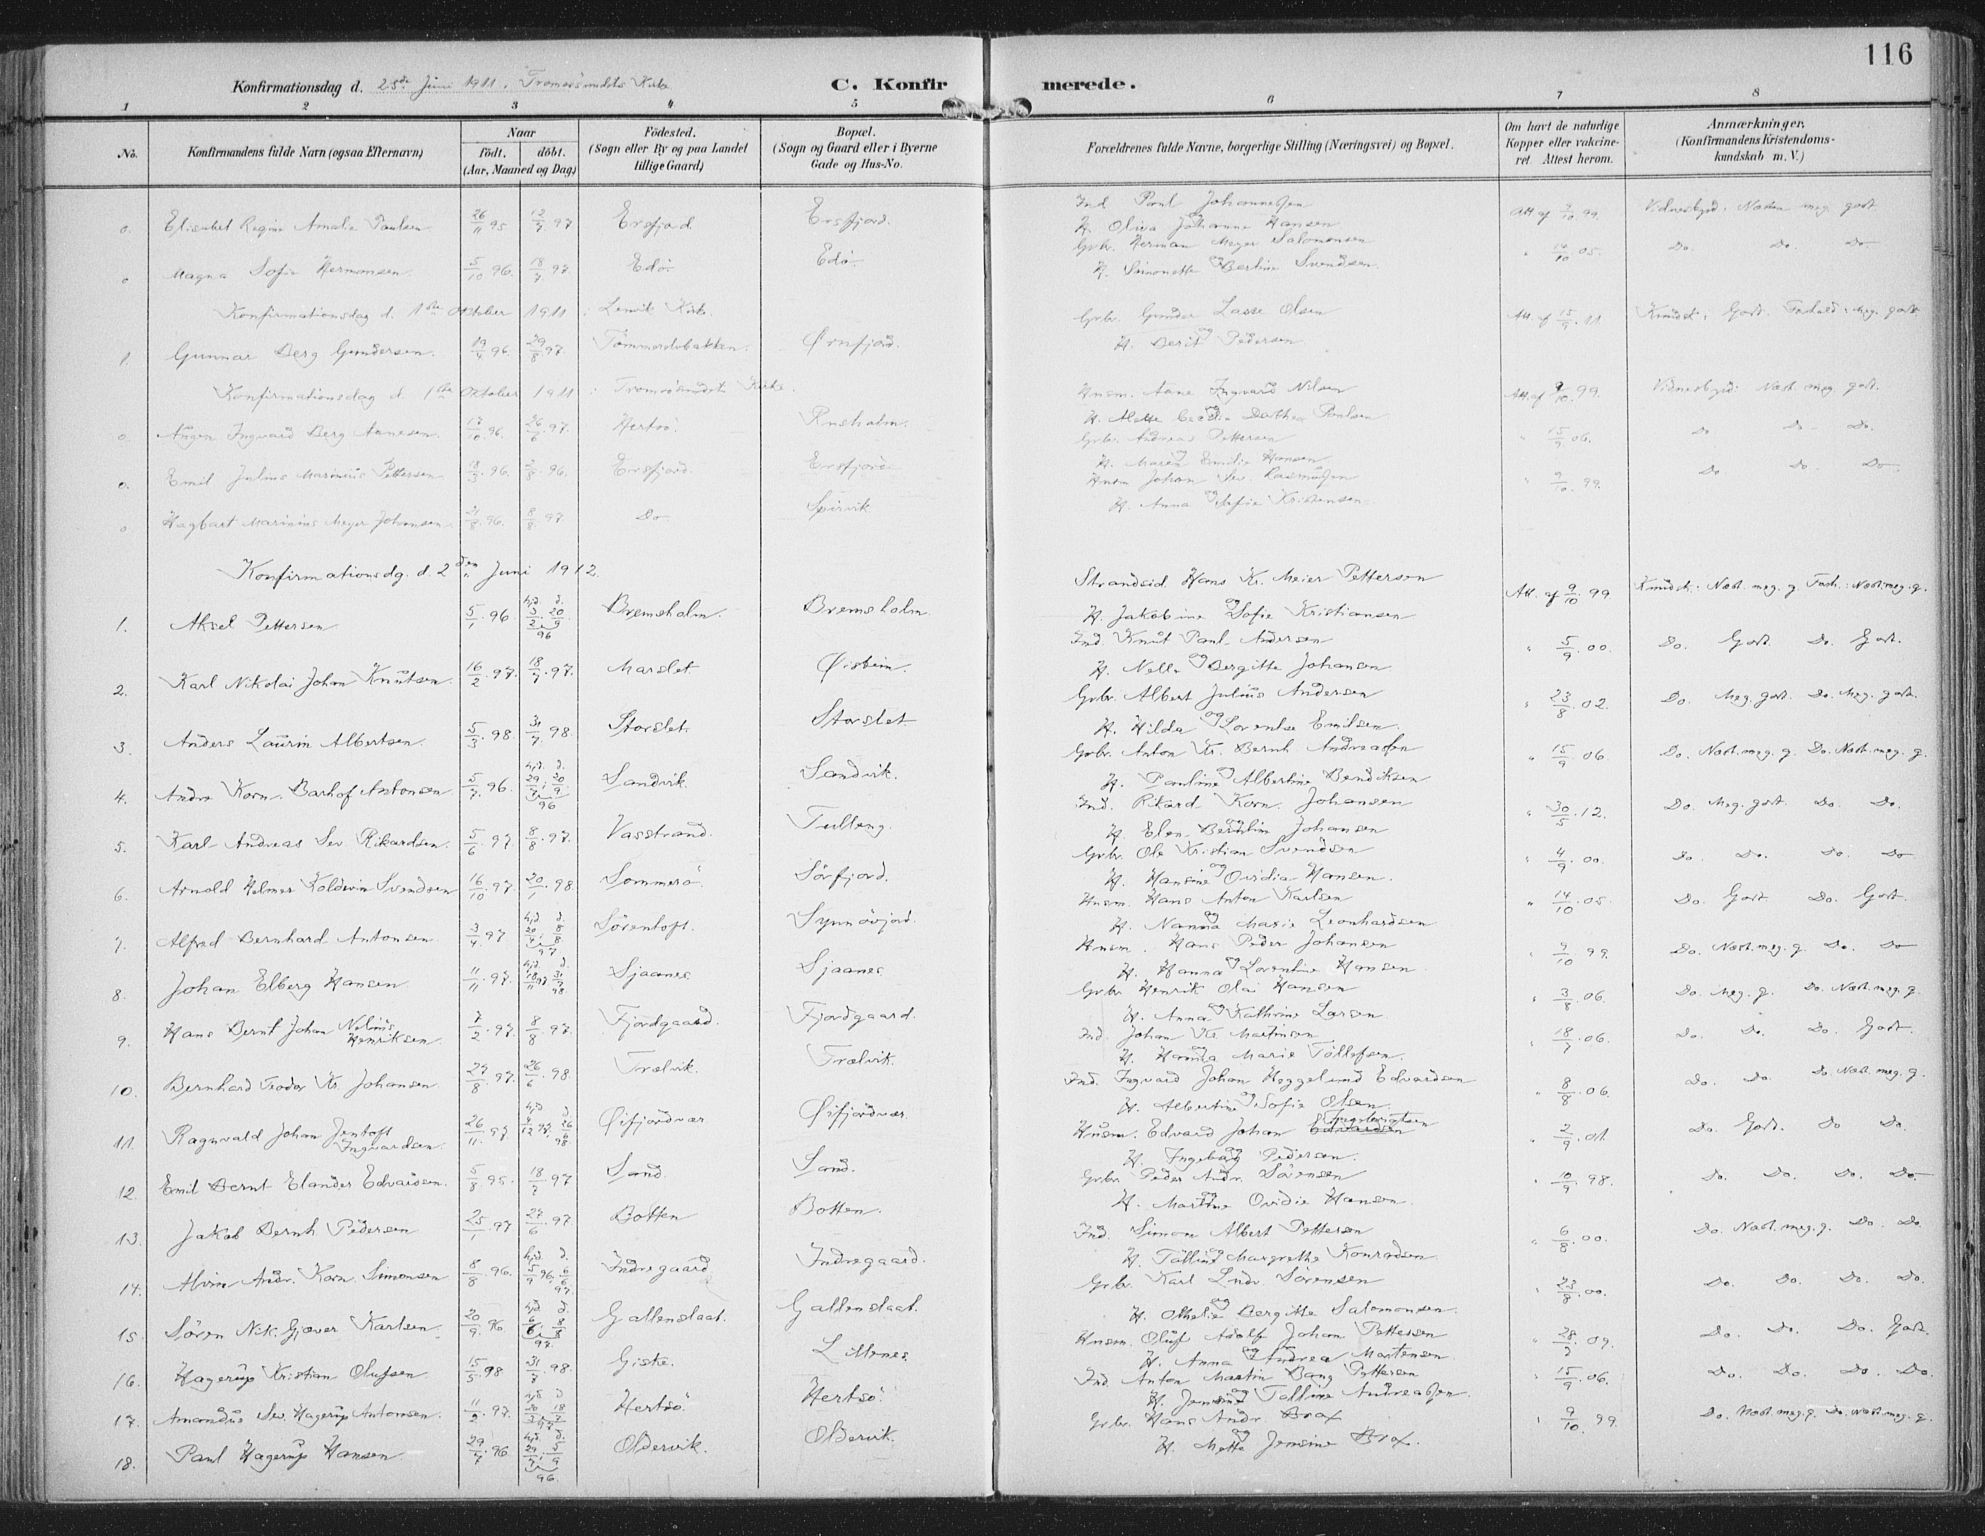 116
Konfirmationsdag d. 25de Juni 1911. Tromsøsundets Kirke
C. Konfirmerede.
1 2 3 4 5 6 7 8
No. Konfirmandens fulde Navn (ogsaa Efternavn) Naar födt. döbt. (Aar, Maaned og Dag) Födested. (Sogn eller By og paa Landet tillige Gaard) Bopæl. (Sogn og Gaard eller i Byerne Gade og Hus-No. Forældrenes fulde Navne, borgerlige Stilling (Næringsvei) og Bopæl. Om havt de naturlige Kopper eller vakcineret. Attest herom. Anmærkninger. (Konfirmandens Kristendomskundskab m. V.)
0. Elisabet Regine Amalie Paulsen 26/11 95 12/7 97 Ersfjord Ersfjord. Ind. Paul Johannesen Att. af 9/10 99. Vidnesbyrd: Næsten meg. godt
H. Oliva Johanne Hansen
0 Magna Sofie Hermansen 5/10 96. 18/7 97. Edø Edø Grbr. Herman Meyer Salomonsen " 16/10 05. Do. Do. Do
H. Simonette og Bertine Svendsen.
Konfirmationsdag d. 1ste Oktober 1911 i Lenvik Kirke.
1. Gunnar Berg Gundersen. 19/9 96. 29/8 97. Tømmerdsbakken. Ørnfjord. Grbr. Gunder Lasse Olsen Att. af 15/9 11 Kundsk: Godt. Forhold: Meg. godt.
og H. Berit Pedersen
Konfirmationsdag d. 1ste Oktober 1911 i Tromsøsundets Kirke.
0. Ingvard Berg Arnesen. 17/10 96. 26/6 97. Hertsö. Rusholm. Husm. Aane Ingvard Nilsen Att. af 9/10 99. Vidnesbyrd: Næst. meg. godt.
H. Mette Cecilie Dorthea Paulsen
0. Emil Julius Marinius Pettersen 18/3 96. 2/8 96. Ersfjord. Ersfjord Grbr. Andreas Pettersen " 15/9 06. Do Do Do.
H. Maren Emilie Hansen
0 Hagbart Marinius Meyer Johansen 21/8 96. 8/8 97. Do Spirvik Husm Johan Sev. Rasmussen " 9/10 99. Do Do. Do
H. Anna og Sofie Kristensen
Konfirmationsdg. d. 2den Juni 1912.
1. Aksel Pettersen 5/1 96 hjd. d. 3/2 20/9 96 Bremsholm. Bremsholm. Strandsid Hans Kr. Meier Pettersen Att. af 9/10 99 Kundsk: Næst. meg. g Forh: Næst. meg. g.
H. Jakobine og Sofie Kristiansen
2. Karl Nikolai Johan Knutsen. 16/2 97. 18/7 97. Marslet Øisbein. Ind. Knut Paul Andersen " 5/9 00. Do. Godt. Do. Godt.
H. Nella og Bergitte Johansen
3. Anders Laurin Albertsen. 5/3 98. 31/7 98. Storslet. Storslet Grbr. Albert Julius Andersen " 23/8 02. Do. Meg. godt. Do. Meg. godt.
H. Hilda og Lorentse Emilsen.
4. Andor Korn. Barhof Antonsen 5/7 96. hjd. d. 29/7 20/9 96 Sandvik. Sandvik. Grbr. Anton Kr. Bernh Andreasen " 15/9 06. Do. Næst. meg. g. Do. Næst. meg. g.
H. Pauline og Albertine Bendiksen
5. Karl Andreas Sev. Rikardsen. 5/6 97 8/8 97. Vasstrand. Tulleng. Ind. Rikard Korn. Johansen " 30/5 12. Do. Meg. godt. Do. Do.
H. Elen Berntine Johansen
6. Arnold Helmer Koldevin Svendsen 16/10 97. 20/1 98. Sommerö. Sörfjord. Grbr. Ole Kristian Svendsen " 4/9 00. Do. Do. Do. Do
H. Hansine og Ovidia Hansen.
7. Alfred Bernhard Antonsen 3/4 97 hjd. d. 20/4 8/8 97 Sörentoft. Husm. Hans Anton Karlsen " 14/10 05. Do. Godt. Do. Godt.
H. Nanna og Marie Leonhardsen
8. Johan Elberg Hansen 11/11 97. hjd. d. 18/11 97 31/7 98 Sjaanes Sjaanes Husm. Hans Peder Johansen " 9/10 99. Do. Næst. meg. g. Do. Do
H. Hanna og Lorentine Hansen
9. Hans Bernt Johan Nelius Henriksen. 7/2 97. 8/8 97. Fjordgaard. Fjordgaard. Grbr. Henrik Olai Hansen " 3/8 06. Do. Meg. g. Do. Næst. meg. g.
H. Anna og Kathrine Larsen.
10. Bernhard Teodor Kr. Johansen. 27/8 97. 26/6 98. Trælvik. Trælvik. Ind. Johan Kr. Martinsen " 18/7 06. Do. Do. Do. Godt.
H. Hanna og Marie Tollefsen.
11. Ragnvald Johan Jentoft Ingvardsen. 26/11 97 hjd. d. 9/12 97. 26/6 98. Øifjordvær Øifjordvær. Ind. Ingvard Johan Heggelund Edvardsen " 8/8 06. Do. Do. Do. Næst. meg. g.
H. Albertine og Sofie Olsen.
12. Emil Bernt Elander Edvardsen. 5/8 95. 18/7 97 Sand. Sand. Husm. Edvard Johan Edvardsen Ingebrigtsen " 2/9 01. Do. Godt. Do Do.
H. Ingeborg Pedersen.
13. Jakob Bernh Pedersen 25/1 97 27/6 97. Botten Botten. Grbr. Peder Andr. Sörensen " 10/9 98. Do. Do. Do. Do
H. Martine Ovidie Hansen.
14. Alvin Andr. Korn. Simonsen 8/8 96. hjd. d. 5/9 96. 6/6 97. Indregaard Indregaard. Ind. Simon Albert Pettersen " 6/8 00. Do. Næst. meg. g. Do. Do.
H. Tolline og Margrethe Konradsen.
15. Sören Nik. Gjæver Karlsen. 20/9 96. hjd. d. 6/6 8/8 97. Gallenslaat. Gallenslaat. Grbr. Karl Lndr. Sörensen " 23/8 00. Do. Do. Do. Do.
H. Othelie og Bergitte Salomonsen.
16. Hagerup Kristian Olufsen 15/5 98 31/7 98. Giske. Lillenes Husm. Oluf Adolf Johan Pettersen " 28/2 09. Do. Do. Do. Godt.
H. Anna og Andrea Mortensen.
17. Amandus Sev. Hagerup Antonsen. 11/2 97. Hertsö. Hertsö. Ind. Anton Martin Bang Pettersen " 15/9 06. Do. Do. Do. Do.
H. Jensine og Tolline Andreasen.
18. Paul Hagerup Hansen 29/7 96 hjd. d. 29/7 5/9 96. Oldervik. Oldervik. Grbr. Hans Andr Brox " 9/10 99. Do. Næst. meg. g. Do. Næst. meg. g.
H. Mette Jensine Brox.